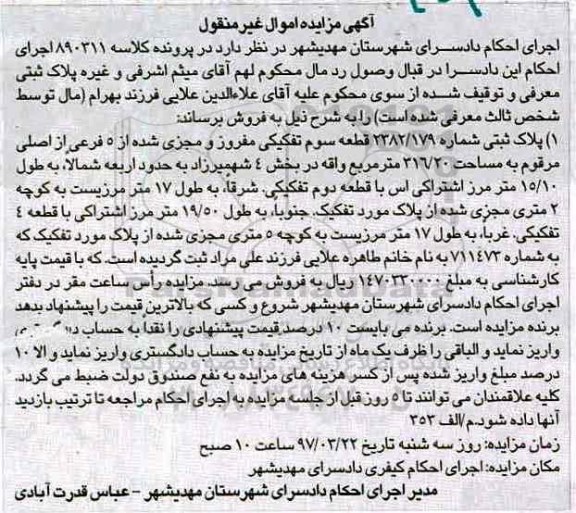 آگهی مزایده اموال غیر منقول
اجرای احکام دادسـرای شهرستان مهدیشهر در نظر دارد در پرونده کلاسه ۸۹۰۳۱۱ اجرای
احکام این دادسـرا در قبال وصول رد مال محکوم لهم آقای میثم اشرفی و غیره پلاک ثبتی
معرفی و توقیف شـده از سوی محکوم علیه آقای علاءالدین علایی فرزند بهرام (مال توسط
شخص ثالث معرفی شده است) را به شرح ذیل به فروش برساند:
۱) پلاک ثبتی شماره ۲۳۸۲/۱۷۹ قطعه سوم تفکیکی مفروز و مجزی شده از ۵ فرعی از اصلی
مرقوم به مساحت ۳۱۶/۲۰ متر مربع واقه در بخش ٤ شهمیرزاد به حدود اربعه شمالا، به طول
۱۵/۱۰ متر مرز اشتراکی اس با قطعه دوم تفکیکی. شرقا، به طول ۱۷ متر مرزیست به کوچه
۲ متری مجزی شده از پلاک مورد تفکیک. جنوباً، به طول ۱۹/۵۰ متر مرز اشتراکی با قطعه ٤
تفکیکی. غرباً، به طول ۱۷ متر مرزیست به کوچه ۵ متری مجزی شده از پلاک مورد تفکیک که
به شماره ۷۱۱٤۷۳ به نام خانم طاهره علایی فرزند علی مراد ثبت گردیده است. که با قیمت پایه
کارشناسی به مبلغ ۱٤۷۰۳۳۰۰۰۰ ریال به فروش می رسد. مزایده رأس ساعت مقر در دفتر
اجرای احکام دادسرای شهرستان مهدیشهر شروع و کسی که بالاترین قیمت را پیشنهاد بدهد
برنده مزایده است. برنده می بایست ۱۰ درصد قیمت پیشنهادی را نقدا به حساب دادگستری
واریز نماید و الباقی را ظرف یک ماه از تاریخ مزایده به حساب دادگستری واریز نماید و الا ۱۰
درصد مبلغ واریز شده پس از کسر هزینه های مزایده به نفع صندوق دولت ضبط می گردد.
کلیه علاقمندان می توانند تا ۵ روز قبل از جلسه مزایده به اجرای احکام مراجعه تا ترتیب بازدید
آنها داده شود.م/الف ۳۵۳
زمان مزایده: روز سه شنبه تاریخ ۹۷/۰۳/۲۲ ساعت ۱۰ صبح
مکان مزایده: اجرای احکام کیفری دادسرای مهدیشهر
مدیر اجرای احکام دادسرای شهرستان مهدیشهر - عباس قدرت آبادی